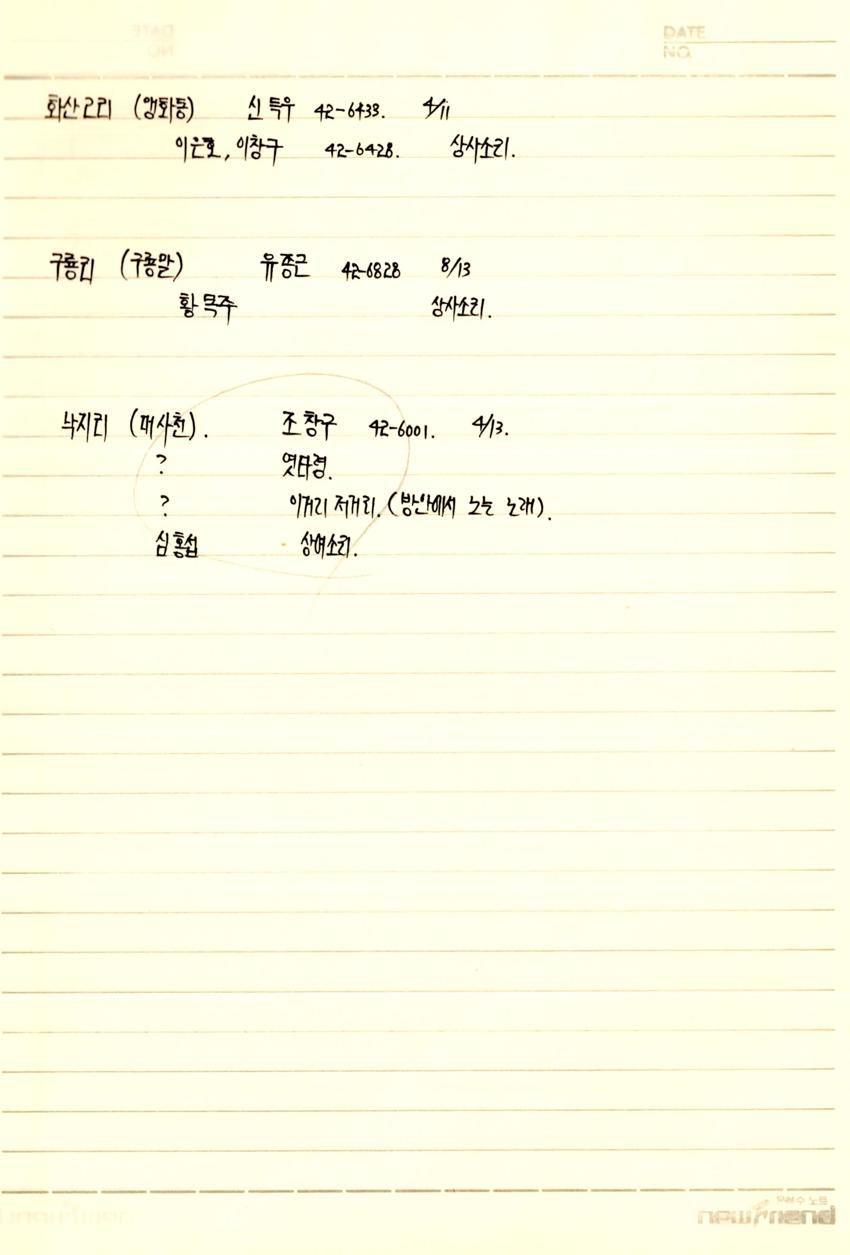 DATE
NO.
화산2리 (앵화동) 신득우 42-6433. 4/11
이은로, 이창구 42-6428. 상사소리.
구룡리 (구룡말) 유종근 42-6828 8/13
황묵주 상사소리.
낙지리 (대사천). 조창구 42-6001. 4/13.
? 엿타령.
? 이거리 저거리. (방안에서 노는 노래).
심홍섭 상여소리.